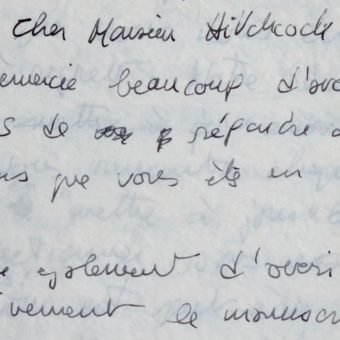 Cher Monsieur Hitchcock
emercie beaucoup d'avo
s de répondre a
ns que vous êts en
e egalement d'avoir
vement le manuscr